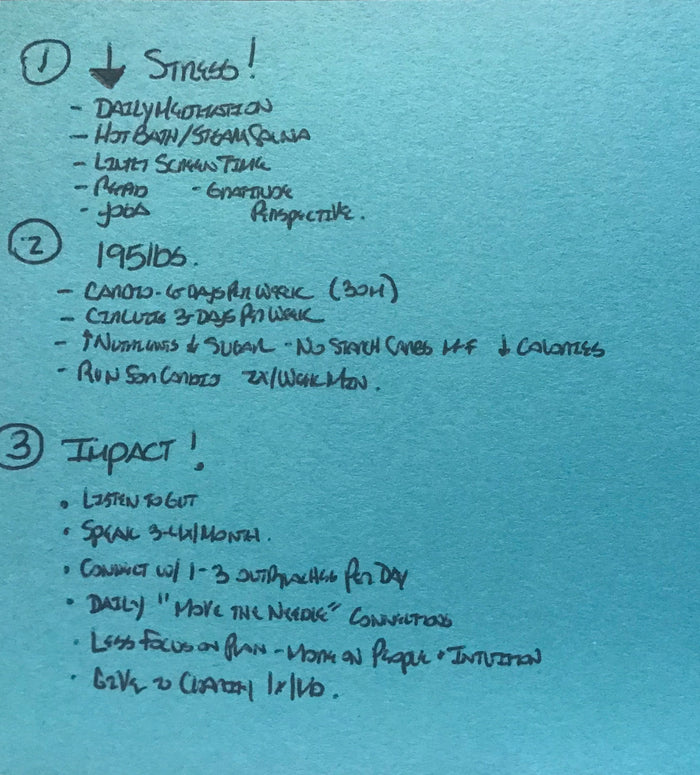 1 ↓ STRESS!
- DAILY MEDITATION
- HOT BATH/STEAM SAUNA
- LIMIT SCREEN TIME
- READ - GRATITUDE
- YOGA PERSPECTIVE.
2 195 lbs.
- CARDIO - 6 DAYS PER WEEK (30M)
- CIRCUITS 3-DAYS PER WEEK
- ↑ NUTRIENTS ↓ SUGAR - NO STARCH CARBS M-F ↓ CALORIES
- RUN FOR CARDIO 2X/WEEK MIN.
3 IMPACT!
• LISTEN TO GUT
• SPEAK 3-4X/MONTH.
• CONNECT W/ 1-3 OUTREACHES PER DAY
• DAILY "MOVE THE NEEDLE" CONNECTIONS
• LESS FOCUS ON PLAN - MORE ON PEOPLE + INTUITION
• GIVE TO CHARITY 1X/MO.